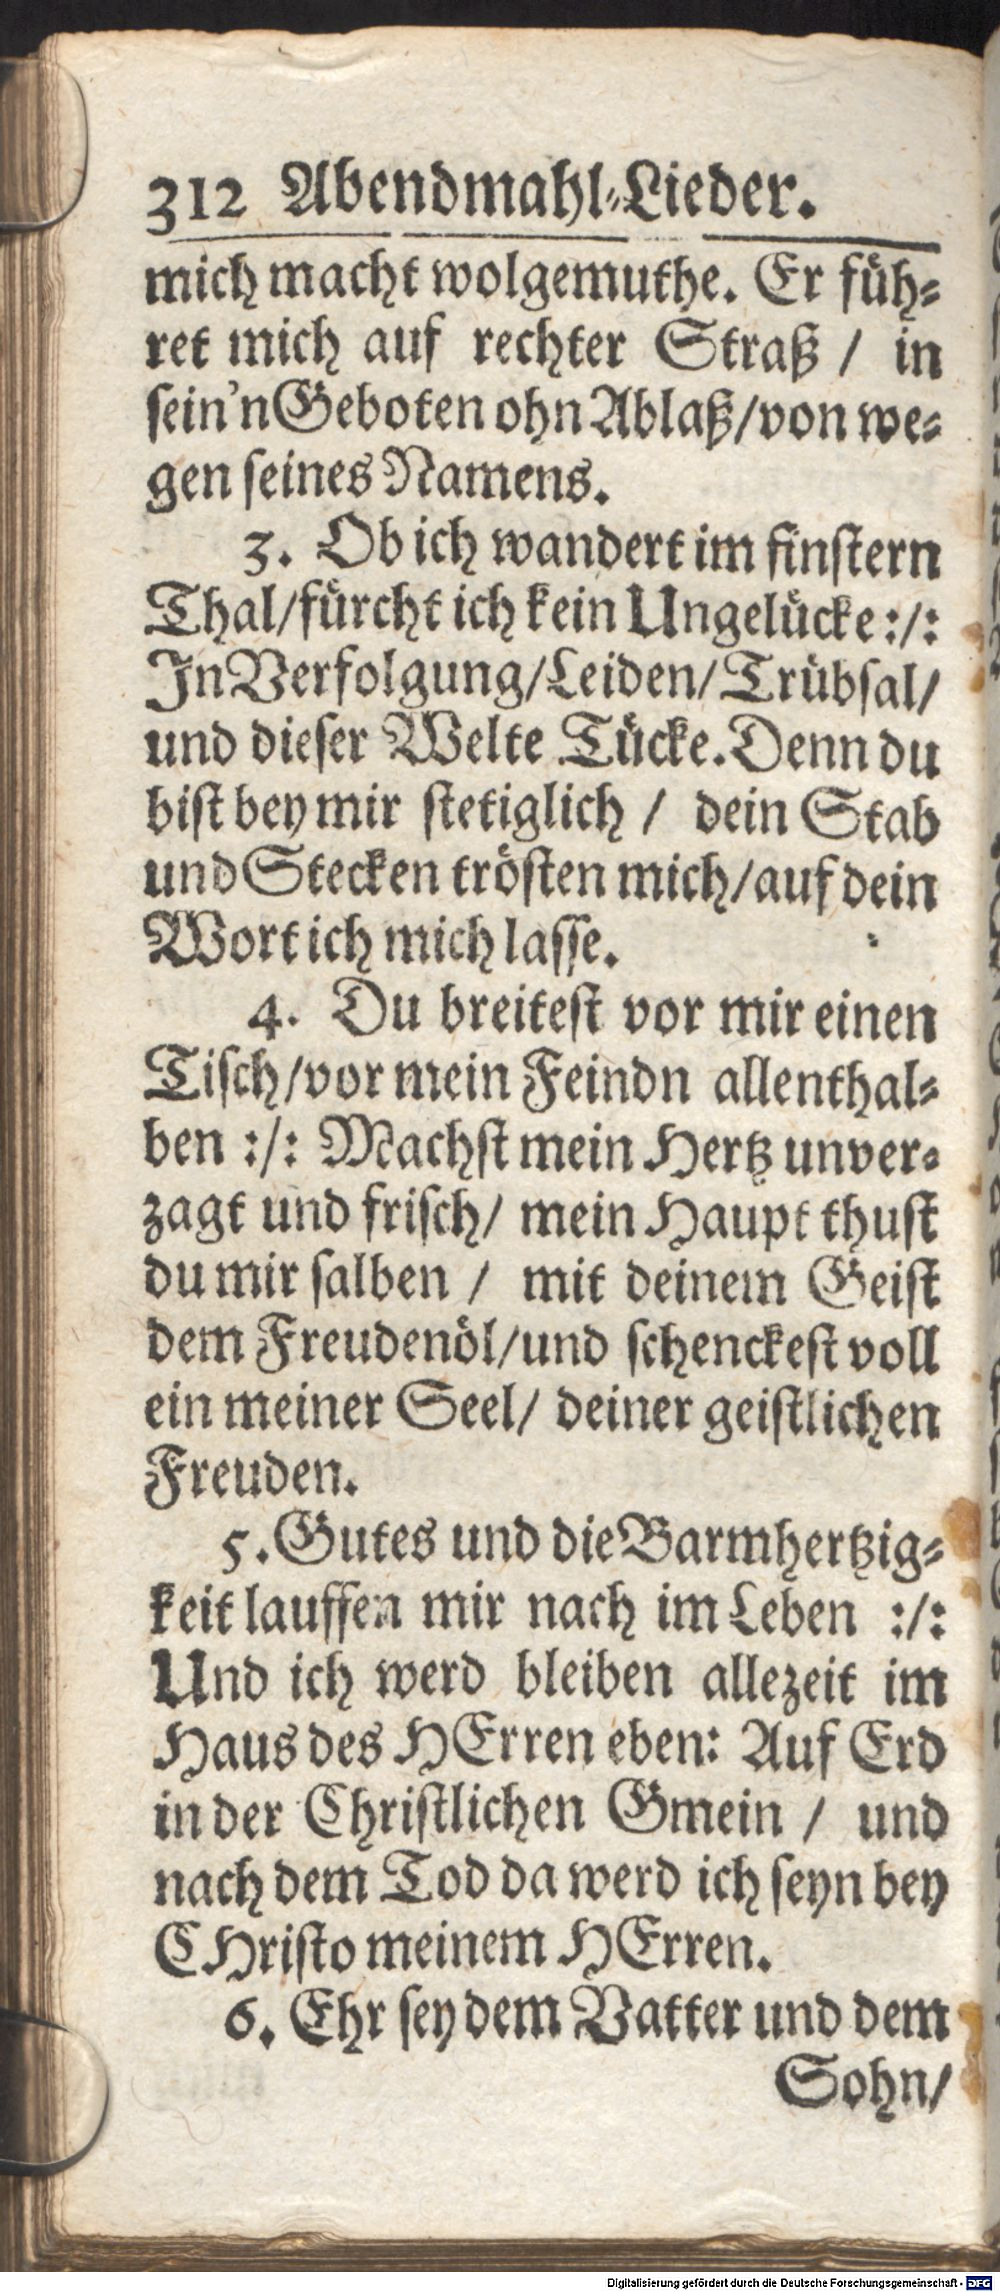 312 Abendmahl-Lieder.
mich macht wolgemuthe. Er füh-
ret mich auf rechter Straß / in
sein'n Geboten ohn Ablaß/von we-
gen seines Namens.
3. Ob ich wandert im finstern
Thal/fürcht ich kein Ungelücke :/:
In Verfolgung/Leiden/Trübsal/
und dieser Welte Tücke. Denn du
bist bey mir stetiglich / dein Stab
und Stecken trösten mich/auf dein
Wort ich mich lasse.
4. Du breitest vor mir einen
Tisch/vor mein Feindn allenthal-
ben :/: Machst mein Hertz unver-
zagt und frisch/ mein Haupt thust
du mir salben / mit deinem Geist
dem Freudenöl/und schenckest voll
ein meiner Seel/ deiner geistlichen
Freuden.
5. Gutes und die Barmhertzig-
keit lauffen mir nach im Leben :/:
Und ich werd bleiben allezeit im
Haus des HErren eben: Auf Erd
in der Christlichen Gmein / und
nach dem Tod da werd ich seyn bey
CHristo meinem HErren.
6. Ehr sey dem Vatter und dem
Sohn/
Digitalisierung gefördert durch die Deutsche Forschungsgemeinschaft - DFG